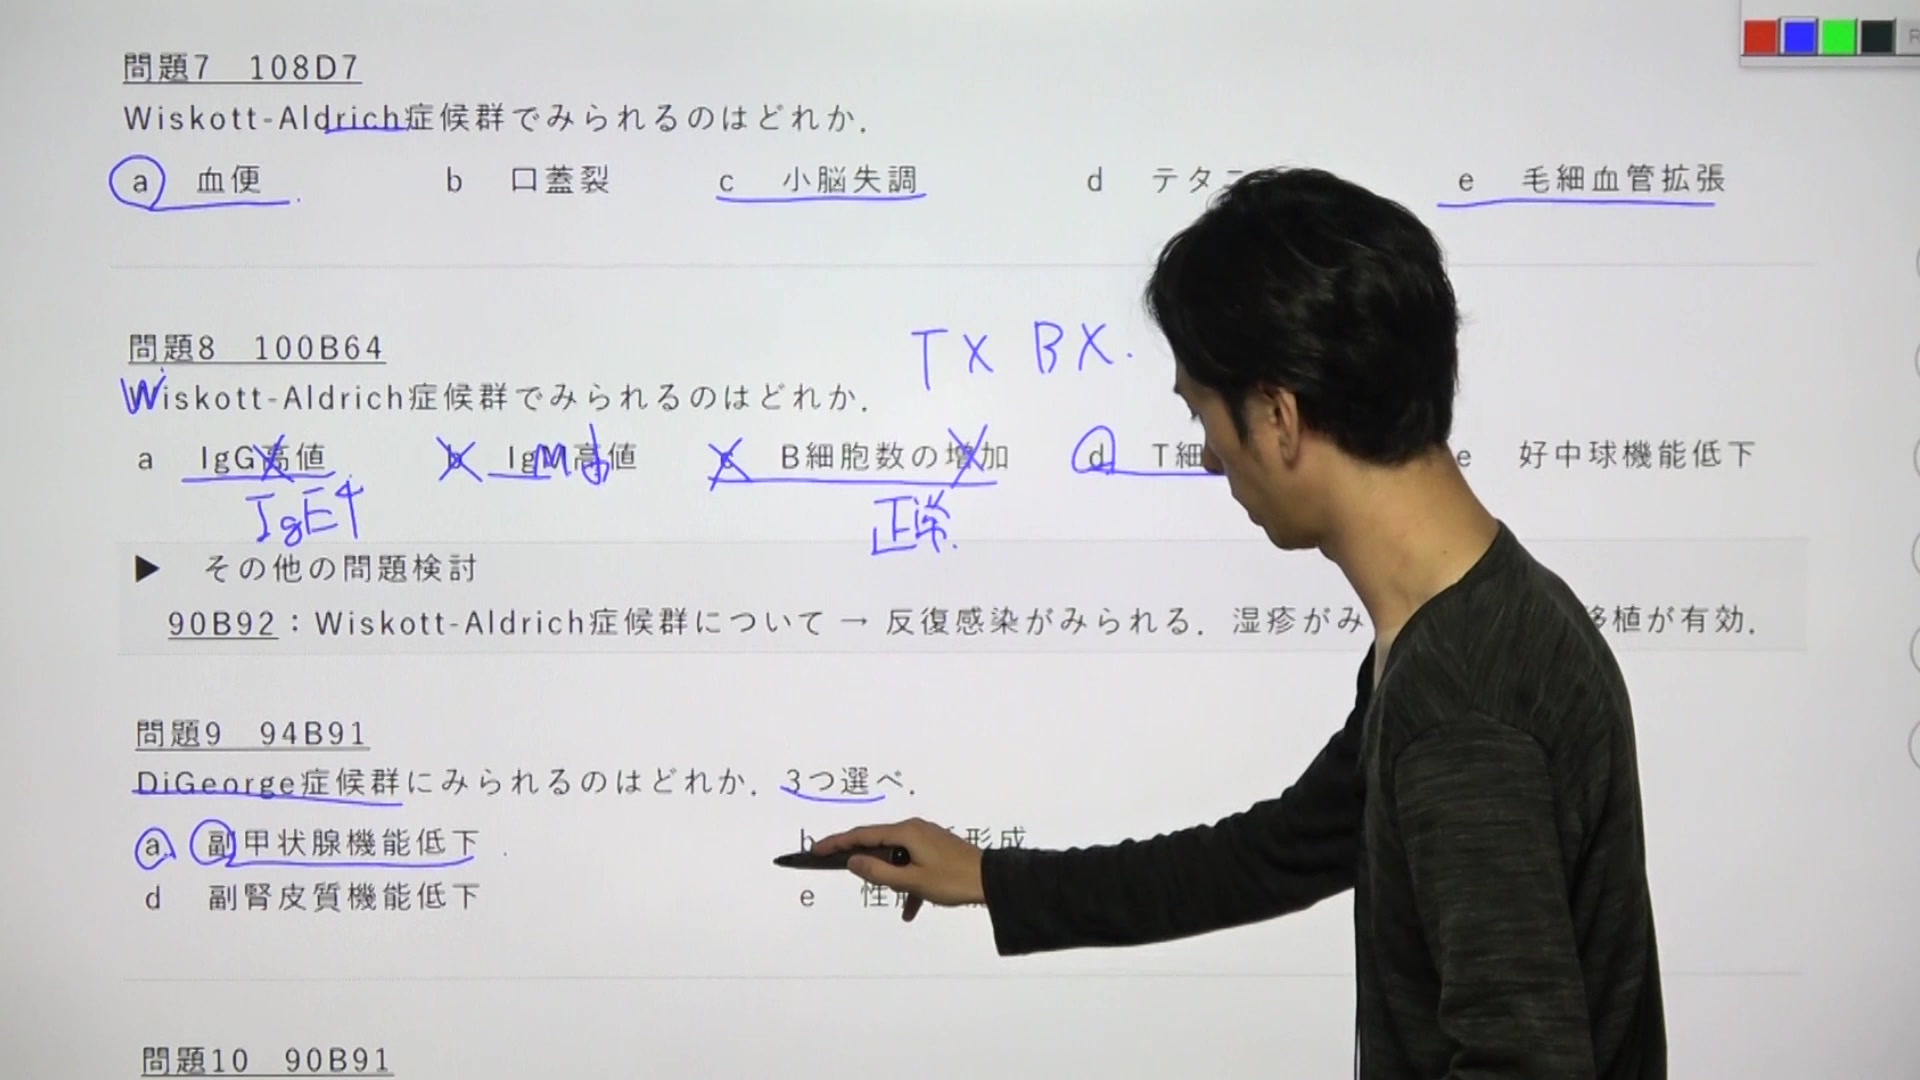 問題7 108D7
Wiskott-Aldrich症候群でみられるのはどれか.
a 血便 b 口蓋裂 c 小脳失調 d テタ e 毛細血管拡張
問題8 100B64
TX BX.
Wiskott-Aldrich症候群でみられるのはどれか.
a IgG高値 b IgM高値 c B細胞数の増加 d T細 e 好中球機能低下
IgE↑ 正常.
▶ その他の問題検討
90B92：Wiskott-Aldrich症候群について → 反復感染がみられる. 湿疹がみ 移植が有効.
問題9 94B91
DiGeorge症候群にみられるのはどれか. 3つ選べ.
a 副甲状腺機能低下 b 形成
d 副腎皮質機能低下 e 性
問題10 90B91